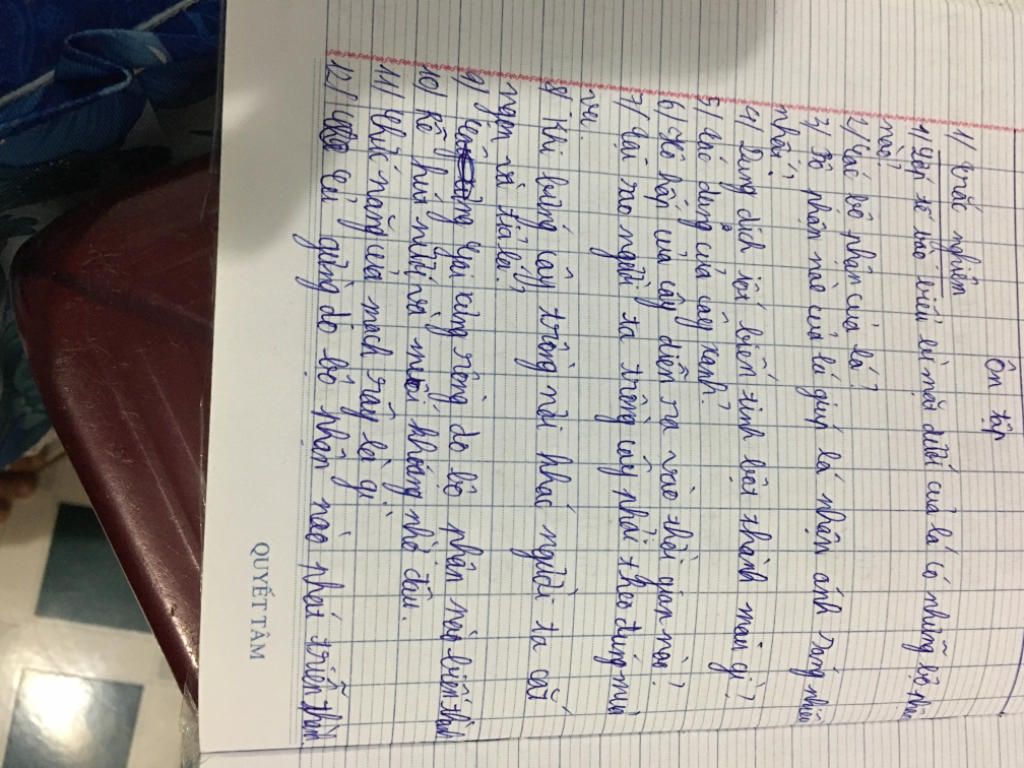 Ôn tập
1/ Trắc nghiệm
1/ Lớp tế bào biểu bì mặt dưới của lá có những bộ phận
nào?
2/ Các bộ phận của lá?
3/ Bộ phận nào của lá giúp lá nhận ánh sáng nhiều
nhất?
4/ Dung dịch iốt biến tinh bột thành màu gì?
5/ Các dạng của cây xanh?
6/ Hô hấp của cây diễn ra vào thời gian nào?
7/ Tại sao người ta trồng cây phải theo đúng mùa
vụ.
8/ Khi bứng cây trồng nơi khác người ta cắt
ngọn và tỉa lá.
9/ Gai xương rồng do bộ phận nào biến thành
10/ Rễ hút nước và muối khoáng nhờ đâu.
11/ Chức năng của mạch rây là gì
12/ Củ gừng do bộ phận nào phát triển thành.
QUYẾT TÂM